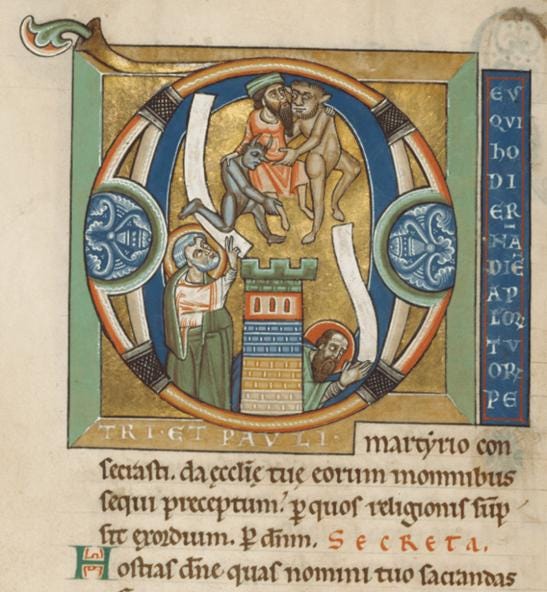 EV
QVI
hO
DI
ER
NĀ
DIĒ
AP
LOꝜ
TV
OꝜ
PE
TRI·ET PAVLI·
martẏrio con
secrasti. da ęcclię tuę eorum inomnibus
sequi preceptum! ꝑquos religionis sūp
sit exordium. P̄ dn̄m. SECRETA.
Hostias dn̄e quas nomini tuo sacrandas